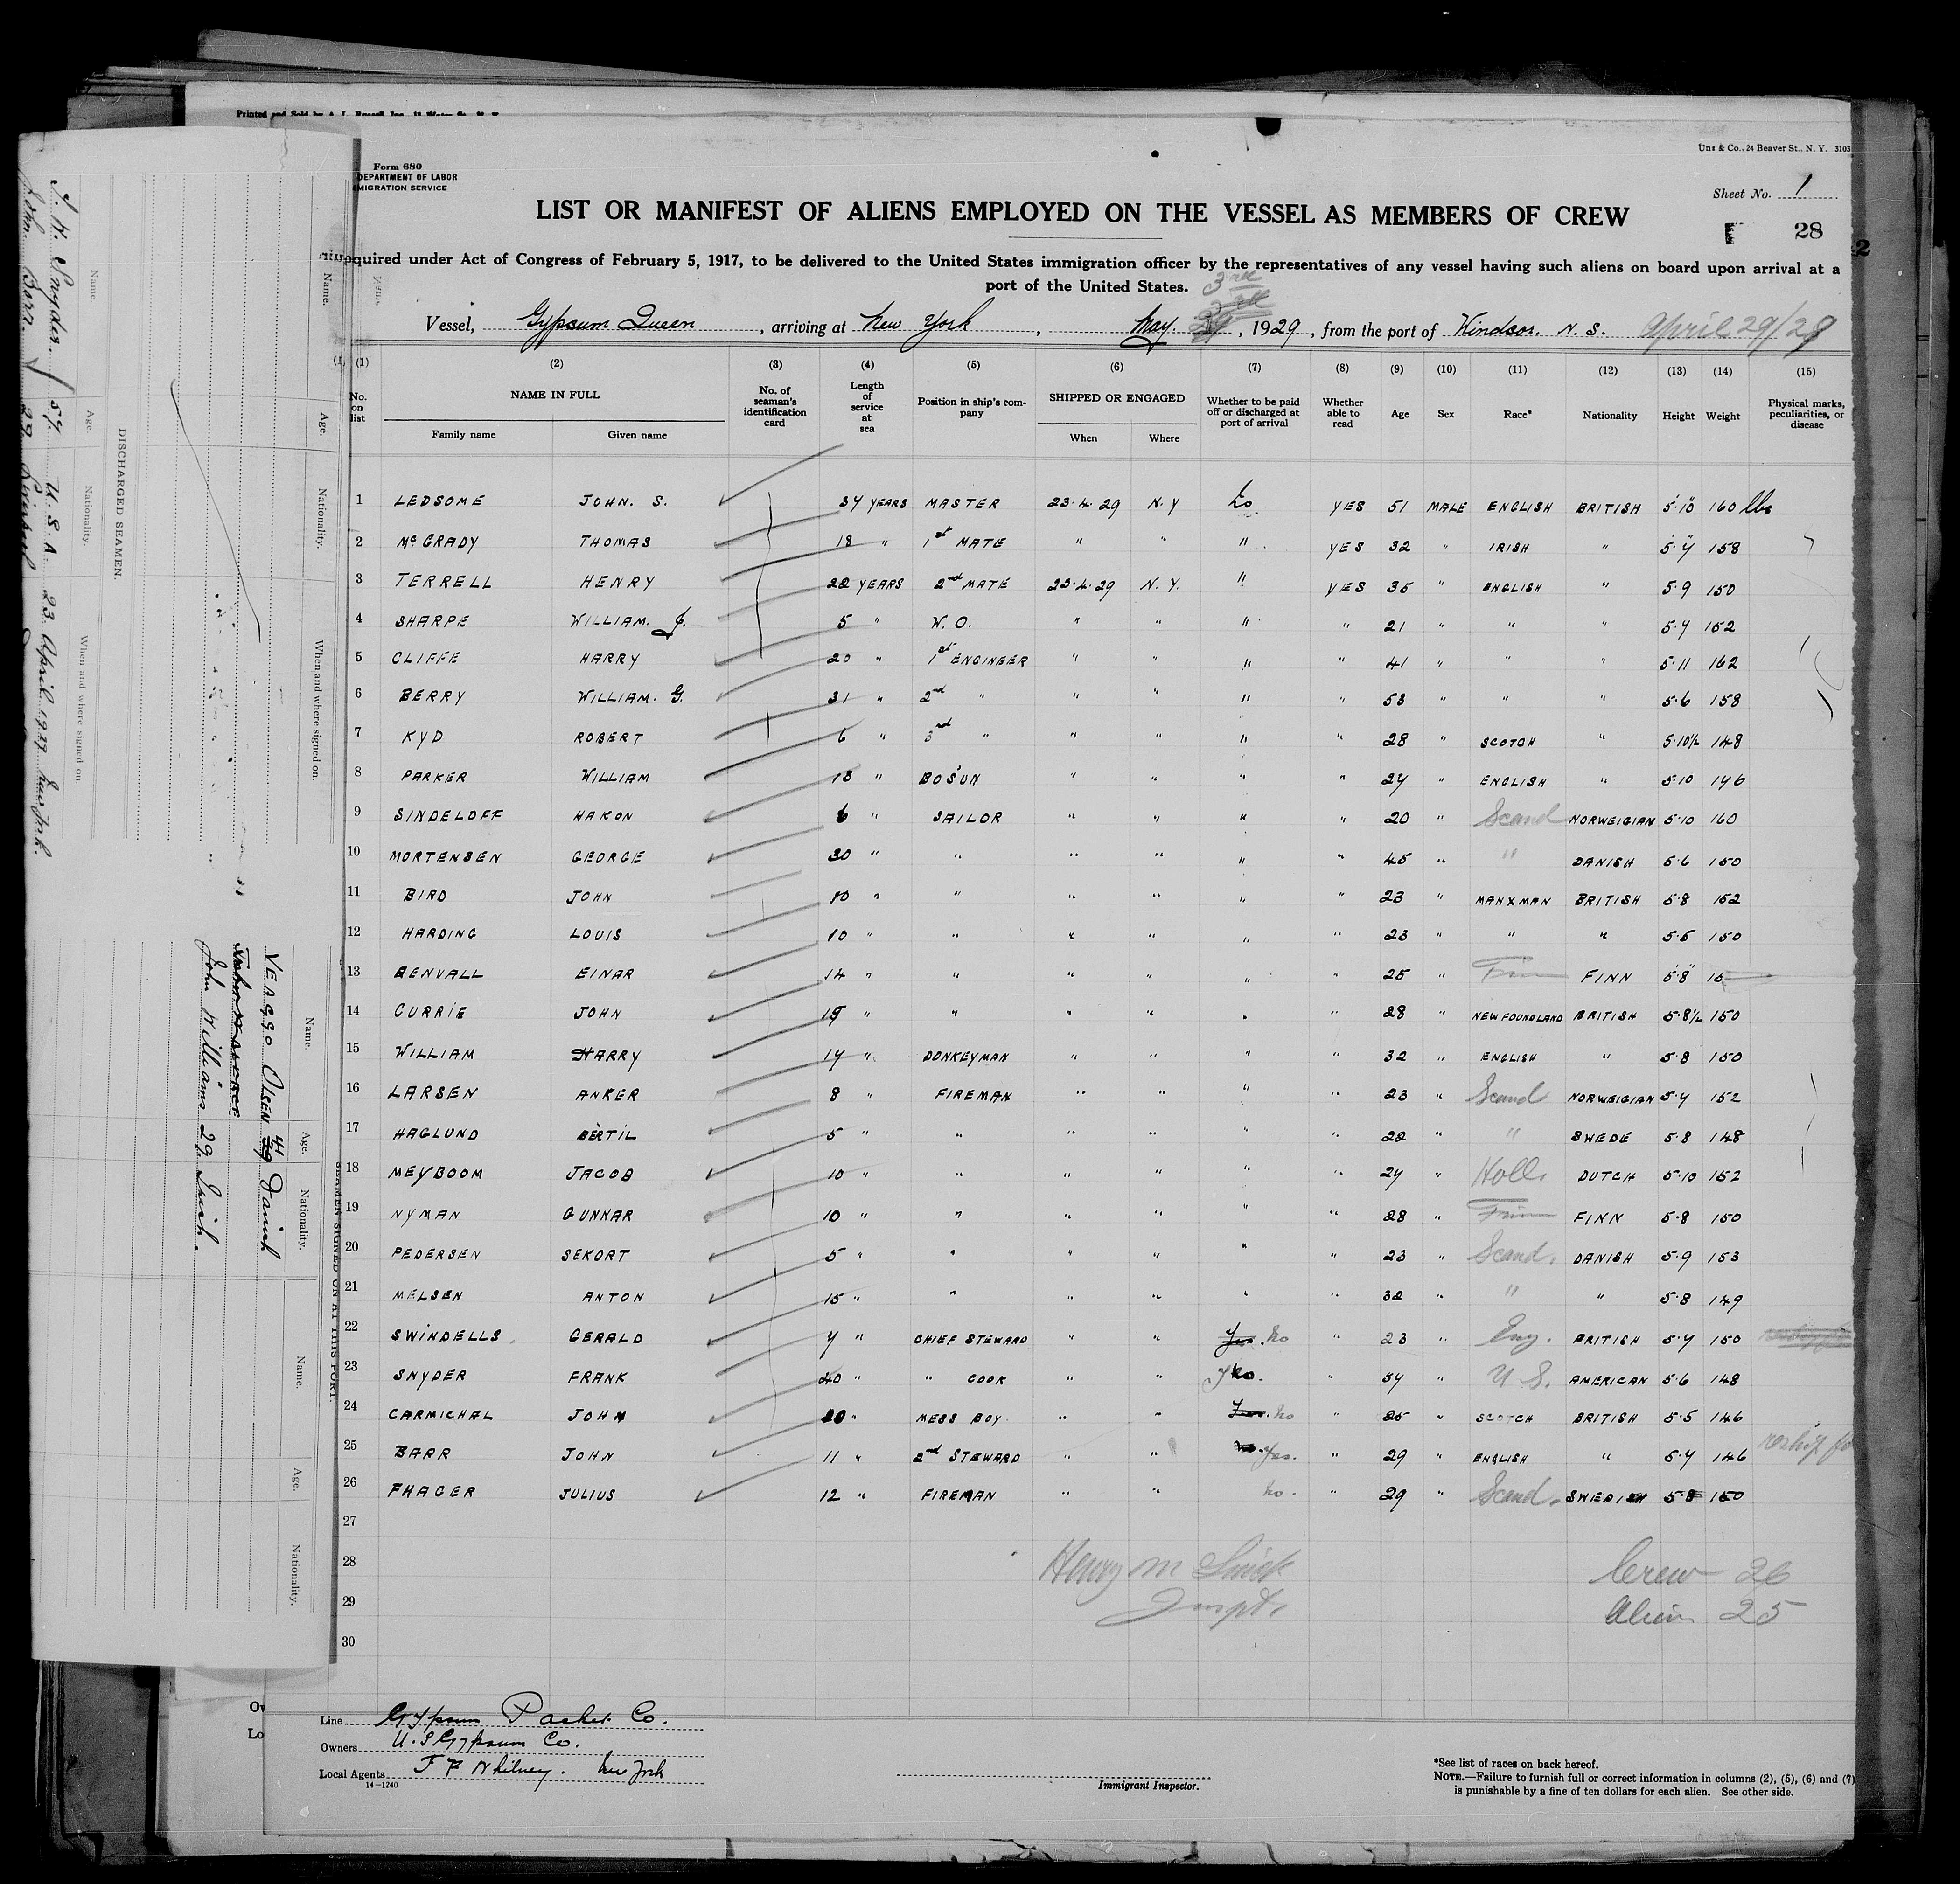 Printed and Sold by A. L. Russell Inc.
Form 680
DEPARTMENT OF LABOR
MIGRATION SERVICE
& Co., 24 Beaver St., N. Y. 3103
Sheet No. 1
28
LIST OR MANIFEST OF ALIENS EMPLOYED ON THE VESSEL AS MEMBERS OF CREW
quired under Act of Congress of February 5, 1917, to be delivered to the United States immigration officer by the representatives of any vessel having such aliens on board upon arrival at a
port of the United States.
3rd
Vessel, Gypsum Queen, arriving at New York, May, 1929, from the port of Windsor. N. S. April 29/29
(1) (2) (3) (4) (5) (6) (7) (8) (9) (10) (11) (12) (13) (14) (15)
No. on list NAME IN FULL Family name Given name No. of seaman's identification card Length of service at sea Position in ship's company SHIPPED OR ENGAGED When Where Whether to be paid off or discharged at port of arrival Whether able to read Age Sex Race* Nationality Height Weight Physical marks, peculiarities, or disease
1 LEDSOME JOHN. S. 34 YEARS MASTER 23·4·29 N.Y No YES 51 MALE ENGLISH BRITISH 5·10 160 lbs
2 McGRADY THOMAS 18 " 1st MATE " " " YES 32 " IRISH " 5·4 158
3 TERRELL HENRY 22 YEARS 2nd MATE 23·4·29 N.Y. " YES 35 " ENGLISH " 5·9 150
4 SHARPE WILLIAM. J. 5 " W. O. " " " " 21 " " " 5·4 152
5 CLIFFE HARRY 20 " 1st ENGINEER " " " " 41 " " " 5·11 162
6 BERRY WILLIAM. G. 31 " 2nd " " " " " 53 " " " 5·6 158
7 KYD ROBERT 6 " 3rd " " " " " 28 " SCOTCH " 5·10½ 148
8 PARKER WILLIAM 18 " BO'SUN " " " " 24 " ENGLISH " 5·10 146
9 SINDELOFF HAKON 6 " SAILOR " " " " 20 " Scand NORWEIGIAN 5·10 160
10 MORTENSEN GEORGE 30 " " " " " " 45 " " DANISH 5·6 150
11 BIRD JOHN 10 " " " " " " 23 " MANXMAN BRITISH 5·8 152
12 HARDING LOUIS 10 " " " " " " 23 " " " 5·5 150
13 BENVALL EINAR 14 " " " " " " 25 " Finn FINN 5·8
14 CURRIE JOHN 15 " " " " " " 28 " NEWFOUNDLAND BRITISH 5·8½ 150
15 WILLIAM HARRY 14 " DONKEYMAN " " " " 32 " ENGLISH " 5·8 150
16 LARSEN ANKER 8 " FIREMAN " " " " 23 " Scand NORWEIGIAN 5·4 152
17 HAGLUND BERTIL 5 " " " " " " 22 " " SWEDE 5·8 148
18 MEYBOOM JACOB 10 " " " " " " 24 " Holl. DUTCH 5·10 152
19 NYMAN GUNNAR 10 " " " " " " 28 " Finn FINN 5·8 150
20 PEDERSEN SEKORT 5 " " " " " " 23 " Scand. DANISH 5·9 153
21 MELSEN ANTON 15 " " " " " " 32 " " " 5·8 149
22 SWINDELLS GERALD 4 " CHIEF STEWARD " " Yes. No " 23 " Eng. BRITISH 5·4 150
23 SNYDER FRANK 40 " " COOK " " No. " 54 " U S. AMERICAN 5·6 148
24 CARMICHAL JOHN 20 " MESS BOY " " Yes. No " 25 " SCOTCH BRITISH 5·5 146
25 BARR JOHN 11 " 2nd STEWARD " " No. Yes. " 29 " ENGLISH " 5·4 146 reship
26 FHAGER JULIUS 12 " FIREMAN " " No. " 29 " Scand. SWEDISH 5·8 150
27
28
29
30
Henry M
Inspt.
Crew 26
Alien 25
Line Gypsum Packet Co.
Owners U.S Gypsum Co.
Local Agents J F Whitney. New York
14—1240
Immigrant Inspector.
*See list of races on back hereof.
NOTE.—Failure to furnish full or correct information in columns (2), (5), (6) and (7)
is punishable by a fine of ten dollars for each alien. See other side.
DISCHARGED SEAMEN.
Name. Age. Nationality. When and where signed on.
Snyder. 54. U.S.A. 23 April 1929 New York.
John Barr. 29
Name. Age. Nationality. When and where signed on
SEAMEN SIGNED ON AT THIS PORT.
Name. Age. Nationality. Name. Age. Nationality.
VEAGGO OLSEN 44 Danish
John Williams 29 Irish.